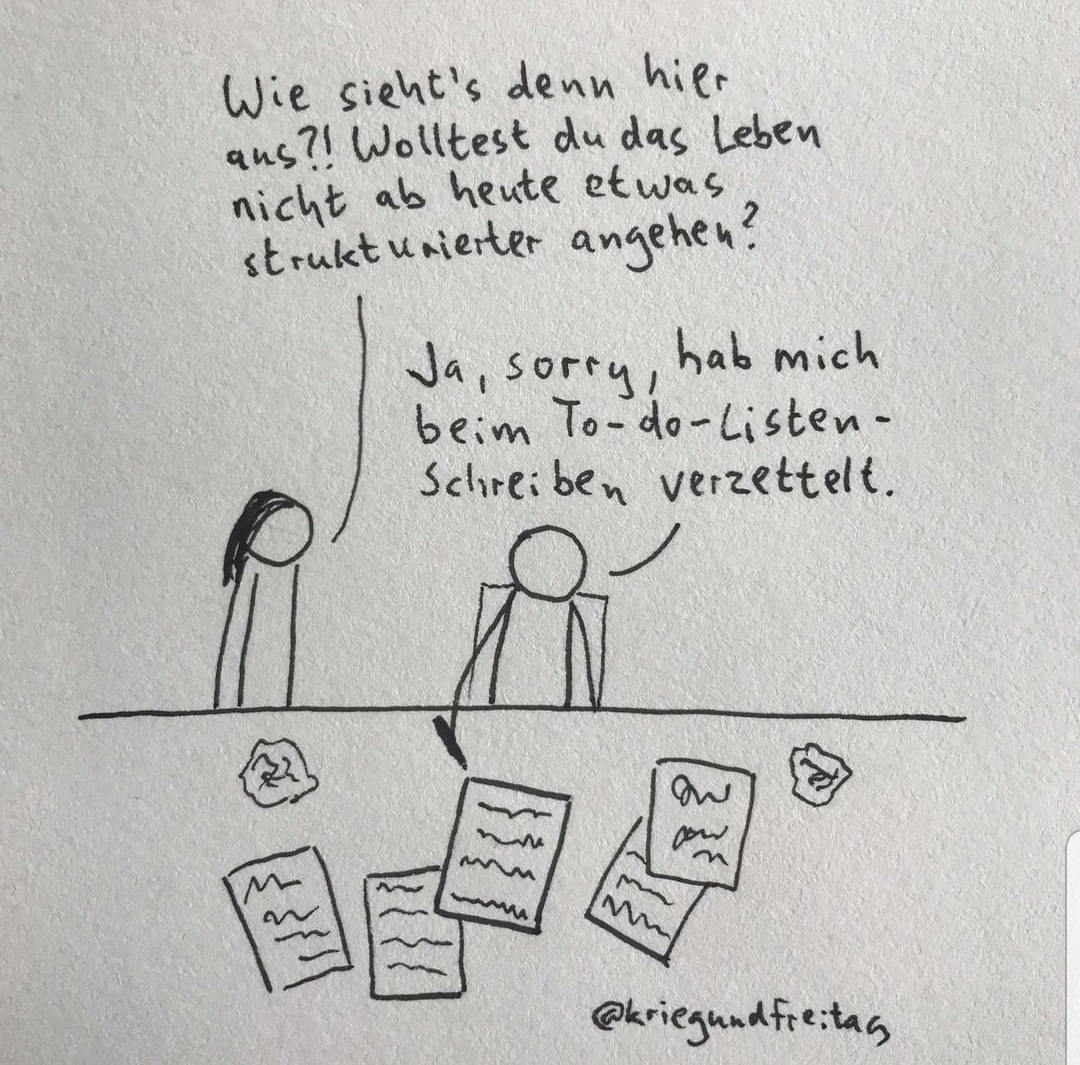 Wie sieht's denn hier
aus?! Wolltest du das Leben
nicht ab heute etwas
strukturierter angehen?
Ja, sorry, hab mich
beim To-do-Listen-
Schreiben verzettelt.
@kriegundfreitag